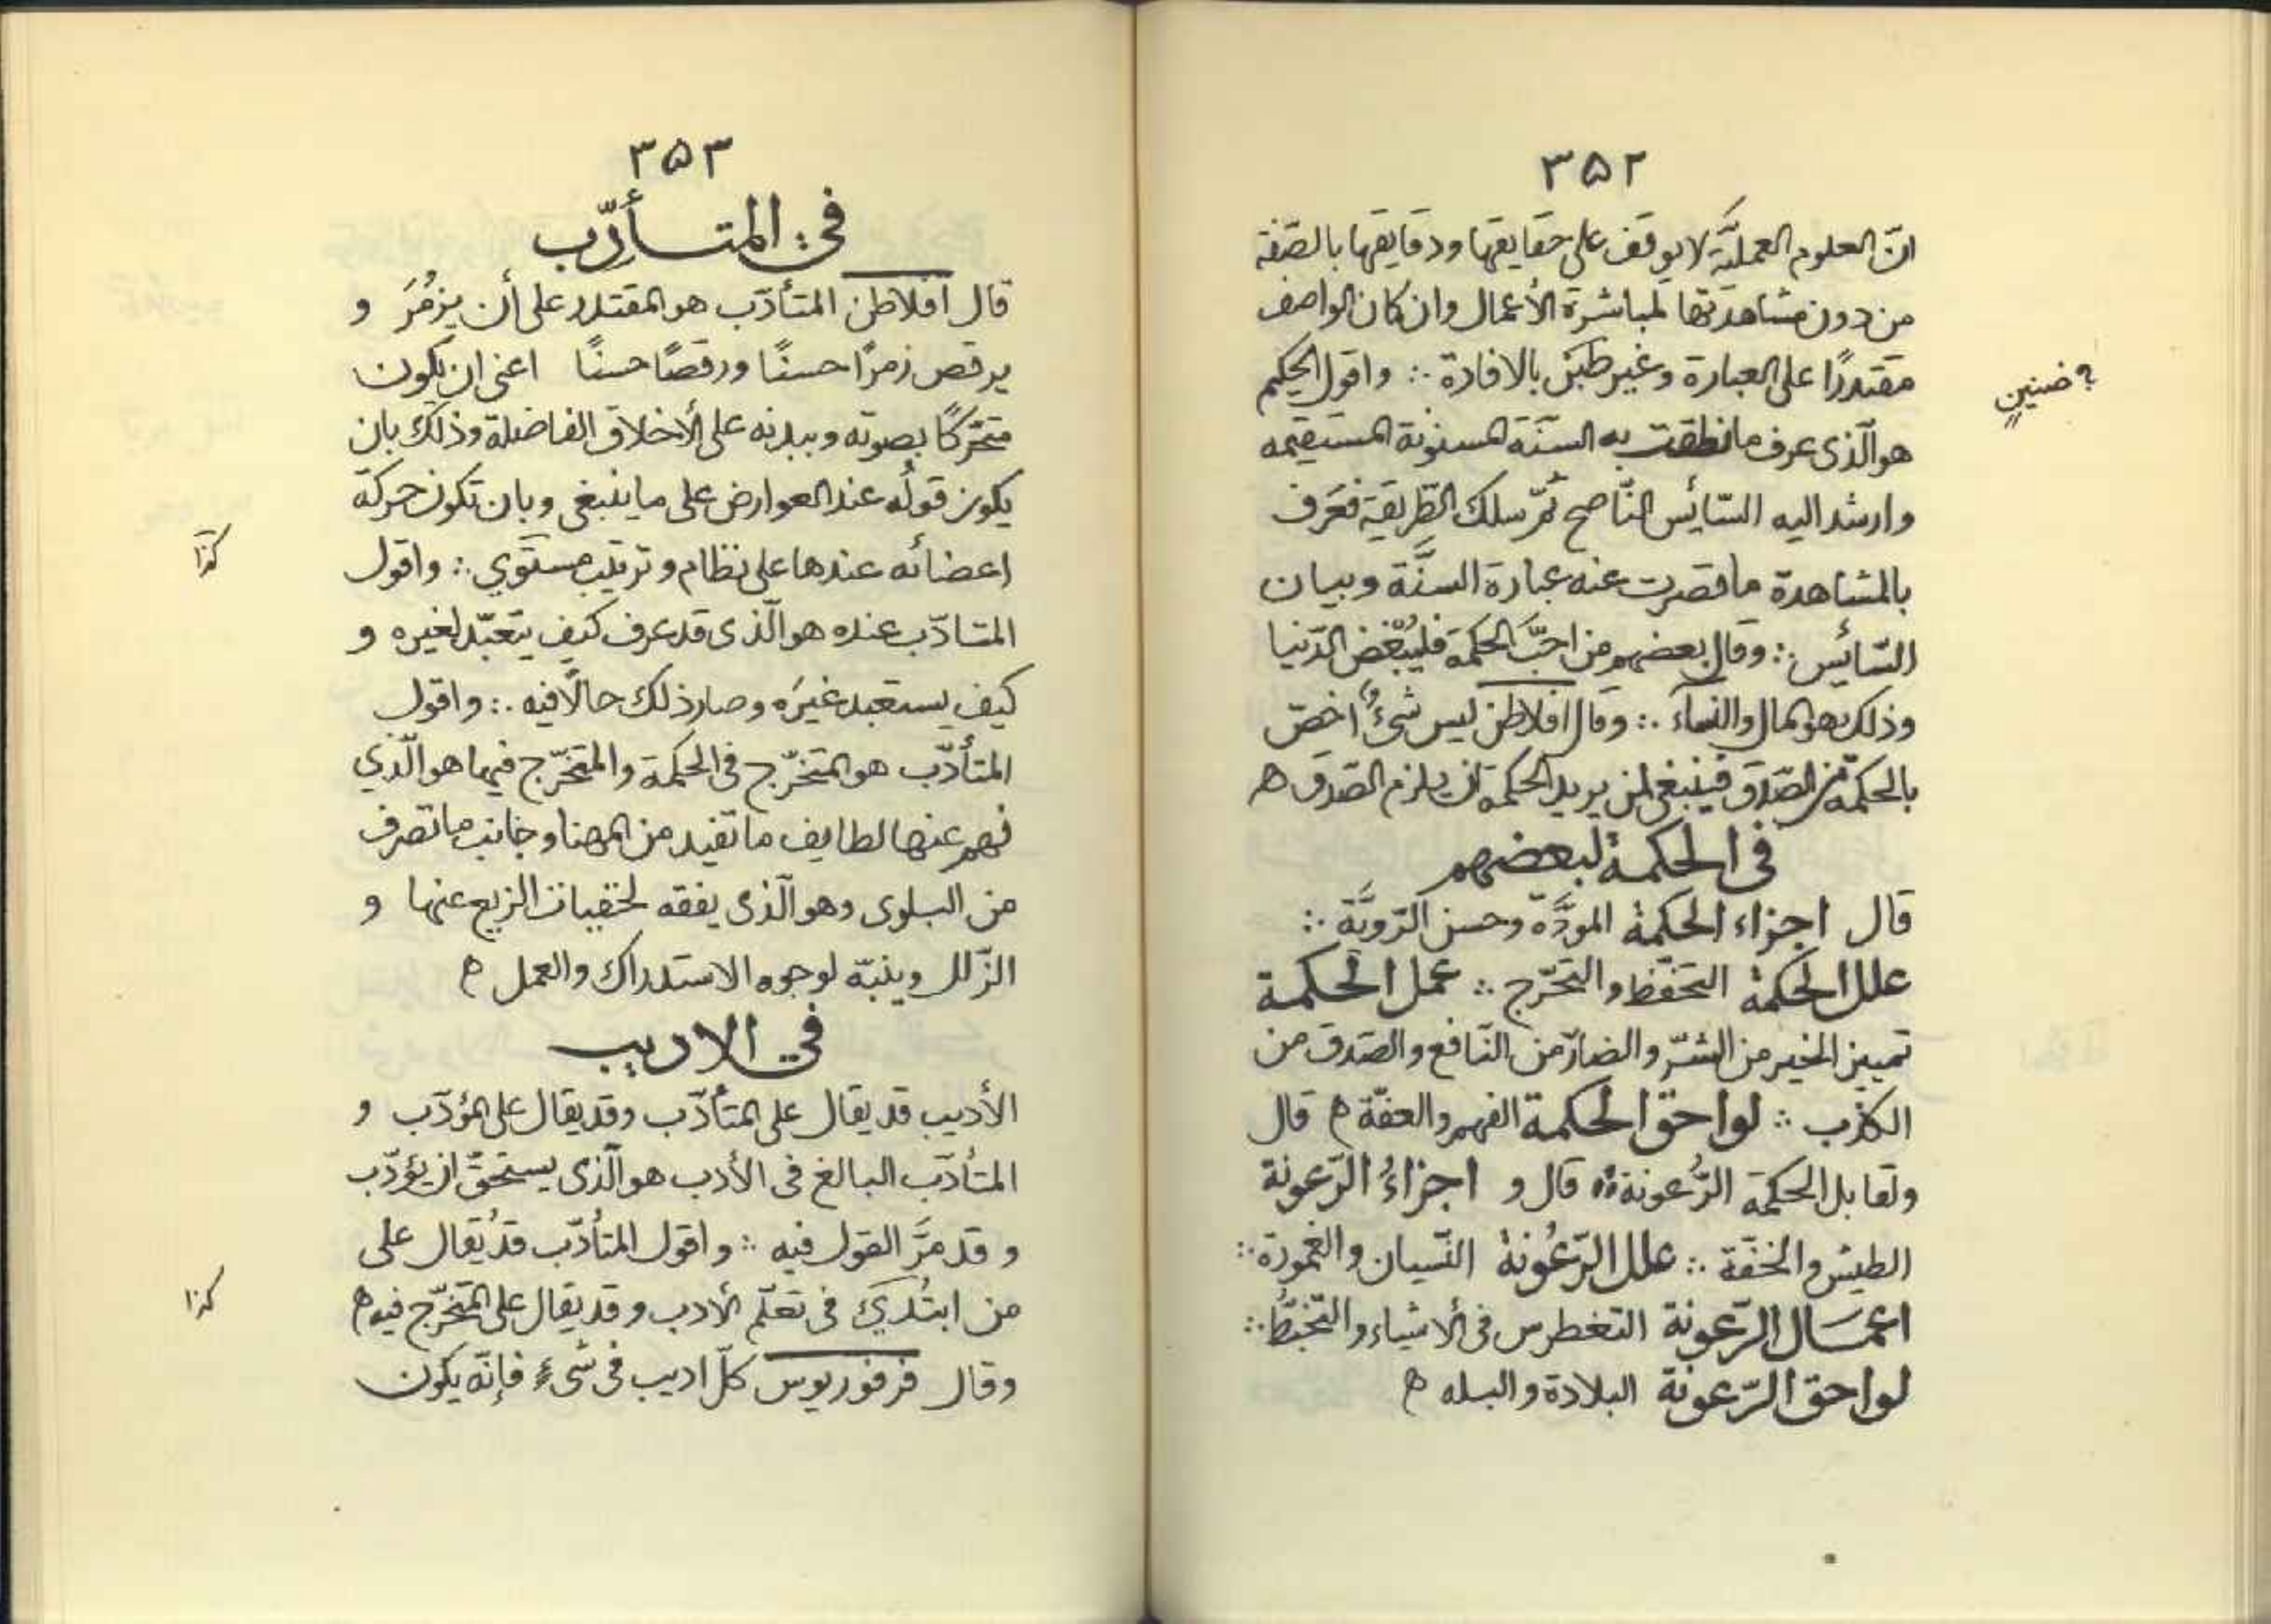 ٣۵٢
انّ العلوم العمليّة لا يوقف على حقايقها ودقايقها بالصّفة
من دون مشاهدتها لمباشرة الأعمال وان كان الواصف
مقتدرًا على العبارة وغير بالافادة ∴ واقول الحكيم
؟ ضنينٍ
هو الّذى عرف ما نطقت به السّنّة المسنونة المستقيمه
وارشد اليه السّائس النّاصح ثمّ سلك الطّريقة فعَرف
بالمشاهدة ما قصرت عنه عبارة السنَّة وبيان
السّائس ∴ وقال بعضهم من احبَّ الحكمة فليُبْغض الدّنيا
وذلك هو المال والنسآء ∴ وقال افلاطن ليس شىءٌ اخصّ
بالحكمة من الصّدق فينبغى لمن يريد الحكمة ان يلزم الصّدق ه
فى الحكمة لبعضهم
قال اجزاء الحكمة المودَّة وحسن الرّويَّة ∴
علل الحكمة التحفّظ والتحرّج ∴ عمل الحكمة
تمييز الخير من الشرّ والضارّ من النّافع والصّدق من
الكذب ∴ لواحق الحكمة الفهم والعفّة ه قال
وتقابل الحكمة الرُّعونة ه قال و اجزاءُ الرّعونة
الطيش والخفّة ∴ علل الرّعُونة النّسيان والغمورة ∴
اعمَال الرّعونة التغطرس فى الأشياء والتّخبّط ∴
لواحق الرّعونة البلادة والبله ه
٣۵٣
فى المتأدّب
قال افلاطن المتأدّب هو المقتدر على أن يزمُرَ و
يرقص زمرًا حسنًا ورقصًا حسنًا اعنى ان يكون
متحرّكًا بصوته وببدنه على الأخلاق الفاضلة وذلك بان
يكون قولُه عند العوارض على ما ينبغى وبان تكون حركة
اعضائه عندها على نظام وترتيب مستَوي ∴ واقول
كذا
المتادّب عنده هو الّذى قد عرف كيف يتعبّد لغيره و
كيف يستعبد غيرَه وصار ذلك حالًا فيه ∴ واقول
المتأدّب هو المتخرّج فى الحكمة والمتخرّج فيها هو الّذي
فهم عنها لطايف ما تفيد من المهنا وجانب ما تصرف
من البلوى وهو الّذى يفقه لخفيات الزيع عنها و
الزّلل وينبّه لوجوه الاستدراك والعمل ه
فى الاديب
الأديب قد يقال على المتأدّب وقد يقال على المؤدّب و
المتأدّب البالغ فى الأدب هو الّذى يستحقّ ان يؤدّب
وقد مرَّ القول فيه ∴ واقول المتأدّب قد يُقال على
من ابتُدِيَ فى تعَلّم الأدب وقد يقال على المتخرّج فيه ه
كذا
وقال فرفوريوس كلّ اديب فى شىءٍ فإنّه يكون